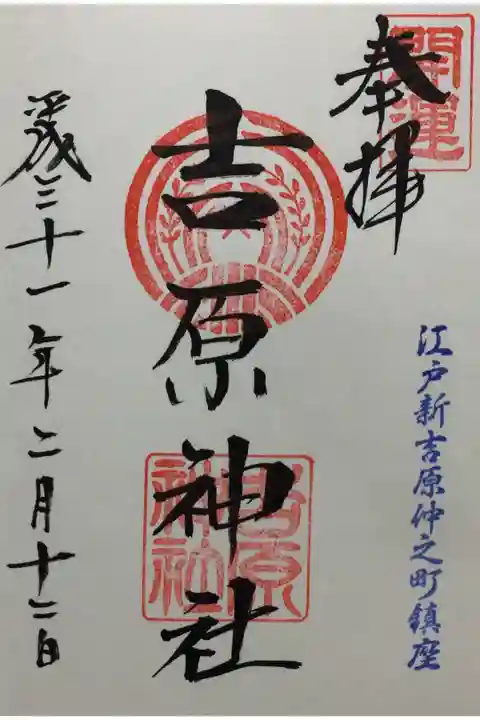 開運
奉拝
江戸新吉原仲之町鎮座
吉原神社
吉原
神社
平成三十一年二月十二日